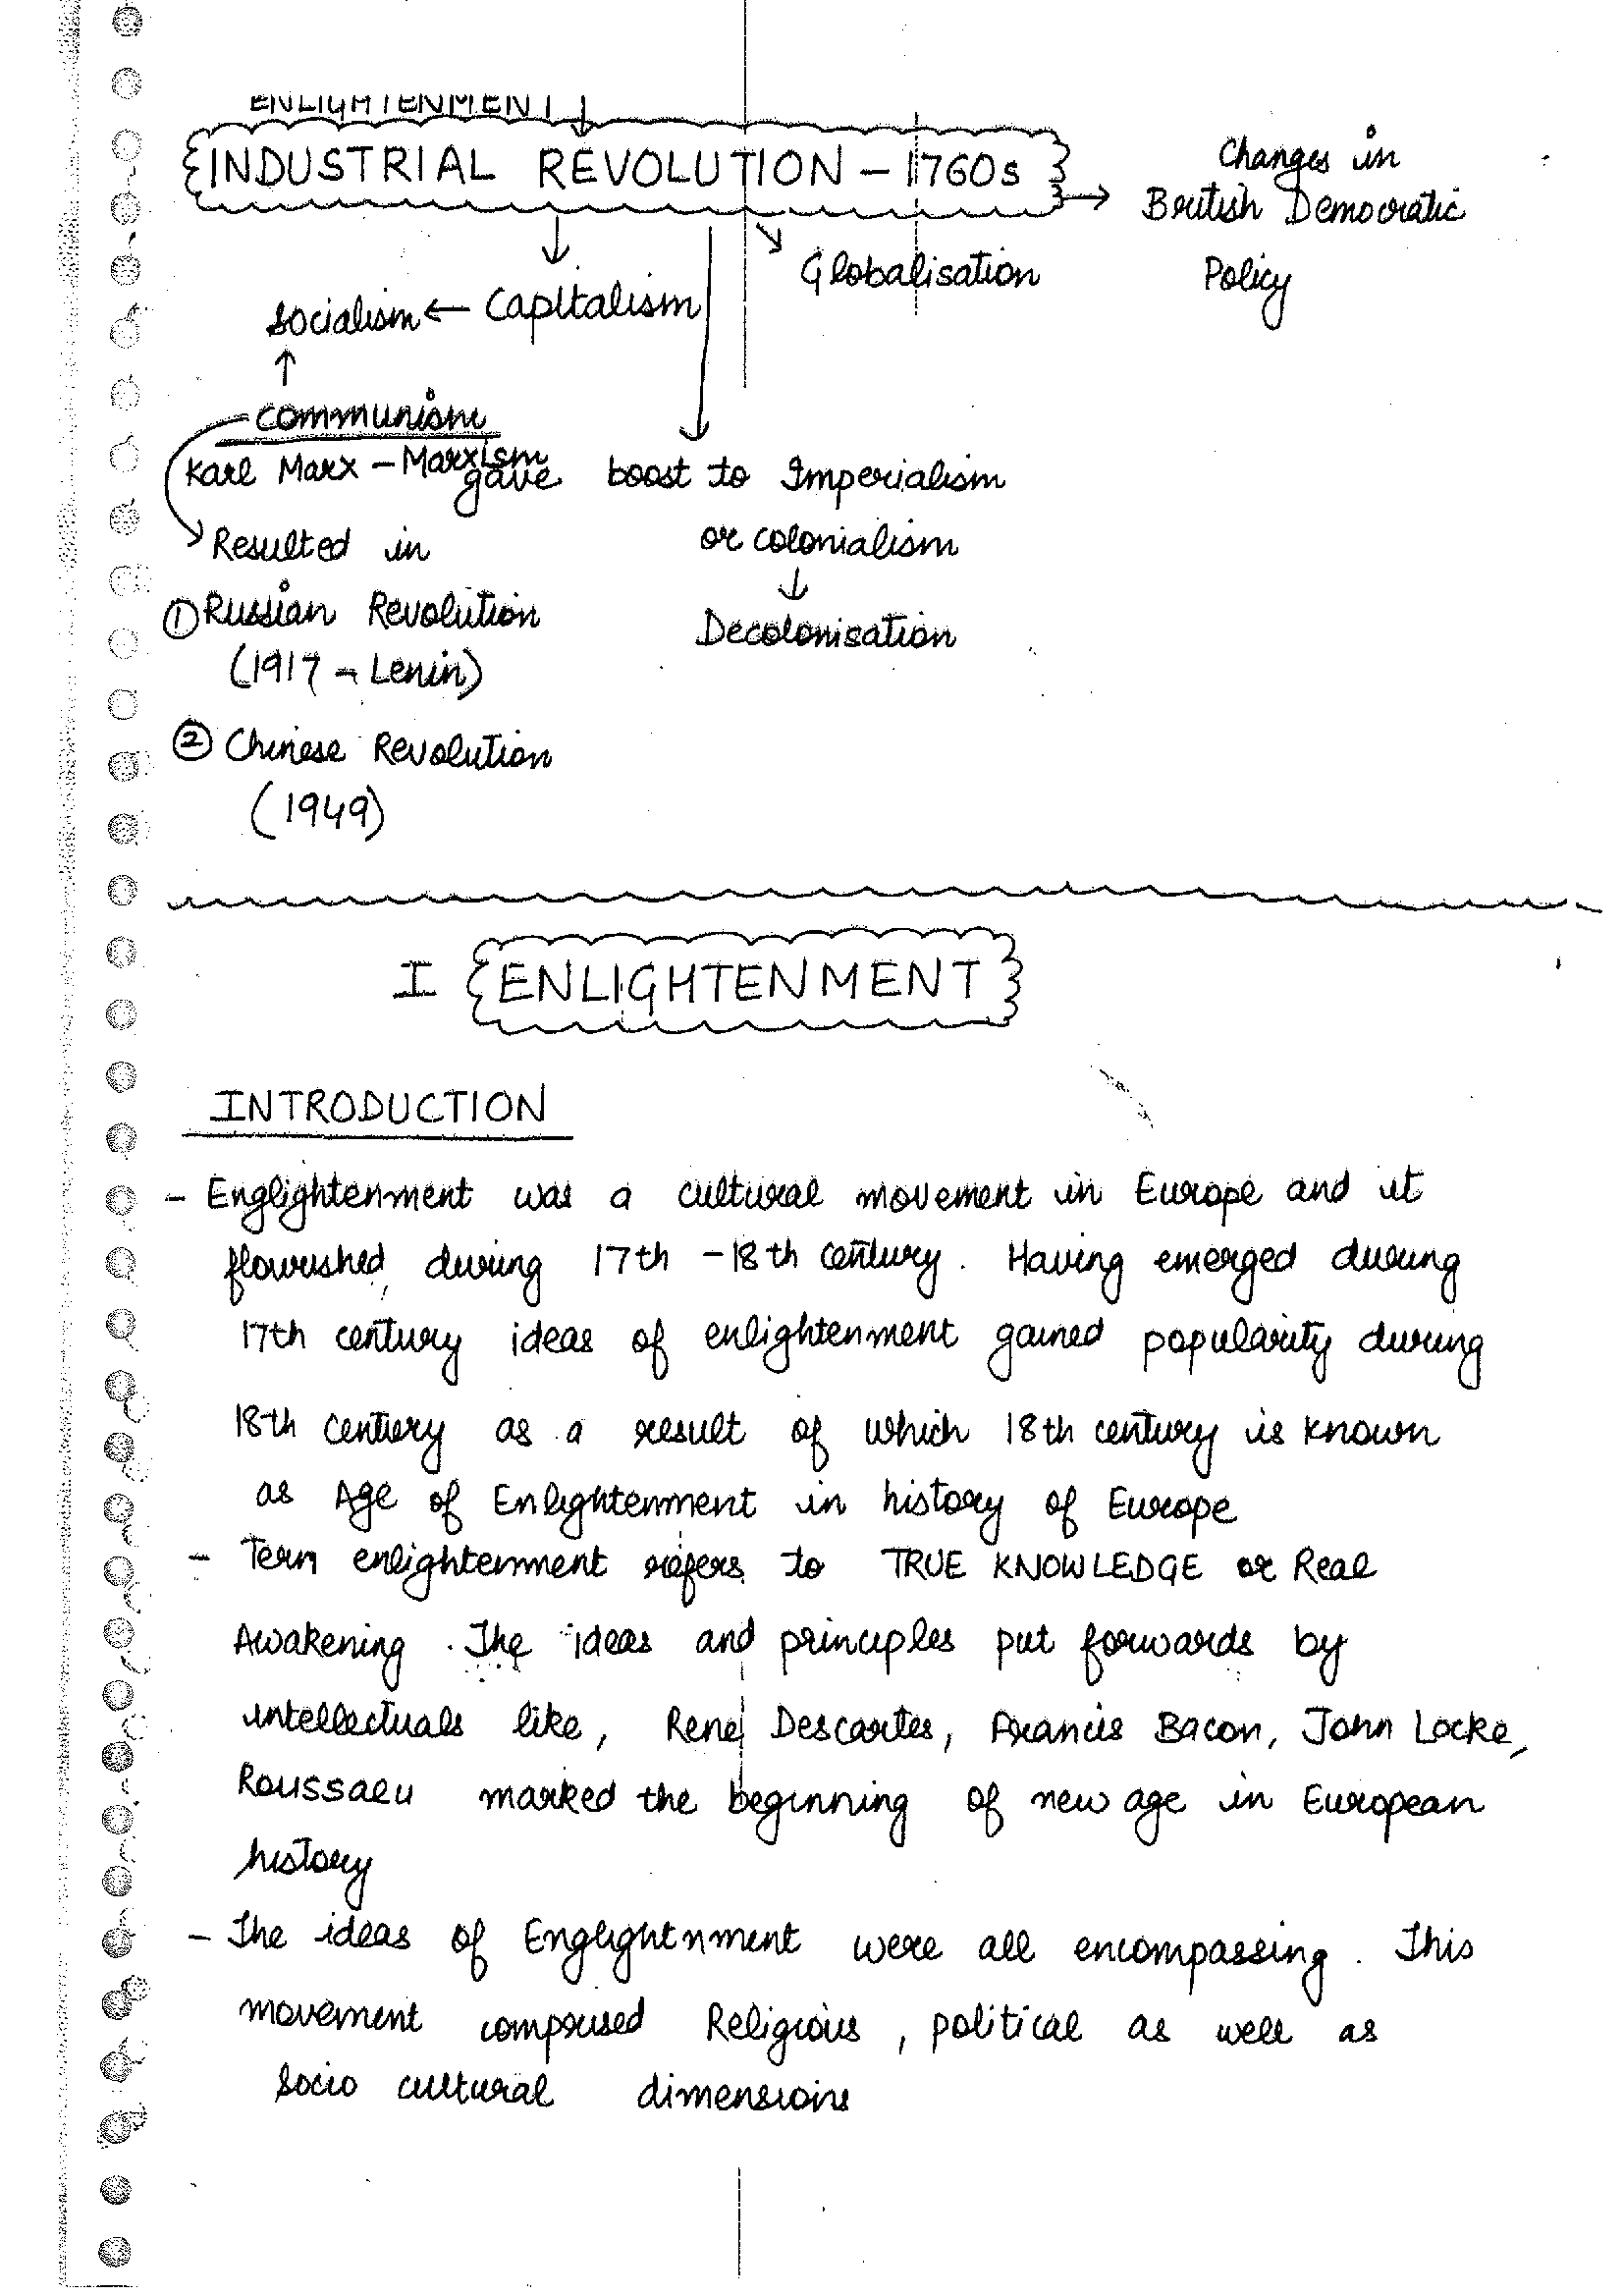 ENLIGHTENMENT
INDUSTRIAL REVOLUTION – 1760s
Changes in
British Democratic
Policy
Globalisation
Socialism ← Capitalism
Communism
Karl Marx – Marxism
gave boost to Imperialism
or colonialism
Decolonisation
Resulted in
① Russian Revolution
(1917 – Lenin)
② Chinese Revolution
(1949)
I ENLIGHTENMENT
INTRODUCTION
– Englightenment was a cultural movement in Europe and it
flourished during 17th – 18th century. Having emerged during
17th century ideas of enlightenment gained popularity during
18th century as a result of which 18th century is known
as Age of Enlightenment in history of Europe
– Term enlightenment refers to TRUE KNOWLEDGE or Real
Awakening. The ideas and principles put forwards by
intellectuals like, Rene Descartes, Francis Bacon, John Locke,
Roussaeu marked the beginning of new age in European
history
– The ideas of Englightnment were all encompassing. This
movement comprised Religious, political as well as
Socio cultural dimensions